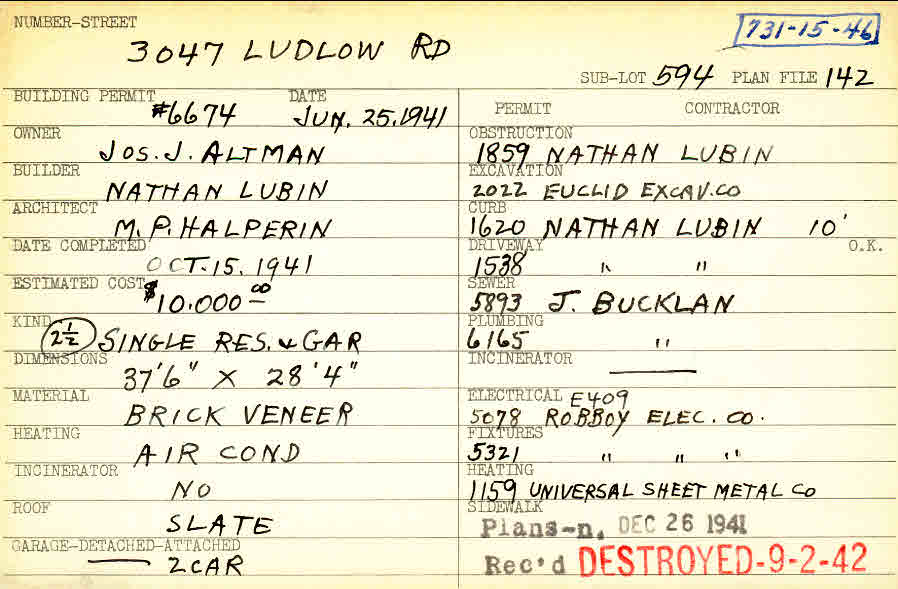 NUMBER-STREET
3047 LUDLOW RD
731-15-46
SUB-LOT 594 PLAN FILE 142
BUILDING PERMIT DATE
#6674 JUN. 25.1941
OWNER
JOS. J. ALTMAN
BUILDER
NATHAN LUBIN
ARCHITECT
M. P. HALPERIN
DATE COMPLETED
OCT. 15. 1941
ESTIMATED COST
$10.000 00
KIND
2 1/2 SINGLE RES. & GAR
DIMENSIONS
37'6" X 28'4"
MATERIAL
BRICK VENEER
HEATING
AIR COND
INCINERATOR
NO
ROOF
SLATE
GARAGE-DETACHED-ATTACHED
2 CAR
PERMIT CONTRACTOR
OBSTRUCTION
1859 NATHAN LUBIN
EXCAVATION
2022 EUCLID EXCAV. CO
CURB
1620 NATHAN LUBIN 10'
DRIVEWAY O.K.
1538 " "
SEWER
5893 J. BUCKLAN
PLUMBING
6165 "
INCINERATOR
ELECTRICAL E409
5078 ROBBOY ELEC. CO.
FIXTURES
5321 " " "
HEATING
1159 UNIVERSAL SHEET METAL CO
SIDEWALK
Plans-n. DEC 26 1941
Rec'd DESTROYED-9-2-42